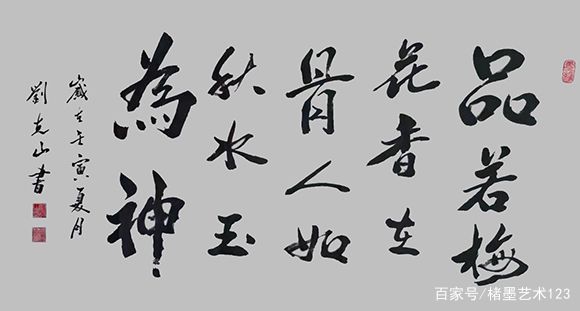 品若梅
花香在
骨人如
秋水玉
為神
歲在壬寅夏月
劉克山書
百家号/楮墨艺术123